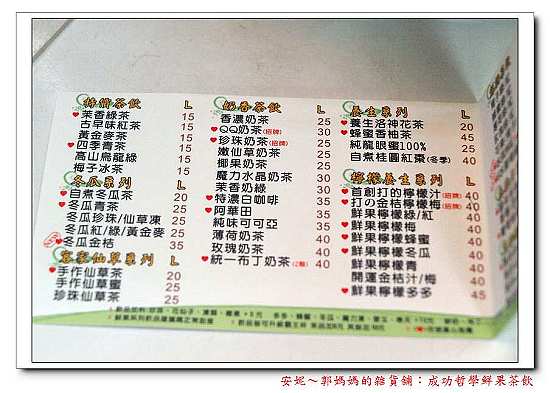 絲綢茶飲 L
♥茉香綠茶 15
古早味紅茶 15
黃金麥茶 15
♥四季青茶 15
高山烏龍綠 15
梅子冰茶 15
冬瓜系列 L
♥自煮冬瓜茶 20
♥冬瓜青茶 25
冬瓜珍珠/仙草凍 25
冬瓜紅/綠/黃金麥 25
♥冬瓜金桔 35
客家仙草系列 L
♥手作仙草茶 20
手作仙草蜜 25
珍珠仙草茶 25
奶香茶飲 L
香濃奶茶 25
♥QQ奶茶(招牌) 30
♥珍珠奶茶(招牌) 25
嫩仙草奶茶 30
椰果奶茶 25
魔力水晶奶茶 30
茉香奶綠 30
♥特濃白咖啡 35
♥阿華田 35
純味可可亞 35
薄荷奶茶 40
玫瑰奶茶 40
♥統一布丁奶茶 40
養生系列 L
養生洛神花茶 20
♥蜂蜜香柚茶 45
純龍眼蜜100% 25
自煮桂圓紅棗(冬季) 40
檸檬養生系列 L
首創打的檸檬汁(招牌) 40
♥打の金桔檸檬梅(招牌) 40
♥鮮果檸檬綠/紅 40
♥鮮果檸檬梅 40
♥鮮果檸檬蜂蜜 40
♥鮮果檸檬冬瓜 40
♥鮮果檸檬青 40
開運金桔汁/梅 40
♥鮮果檸檬多多 45
安妮~郭媽媽的雜貨舖：成功哲學鮮果茶飲